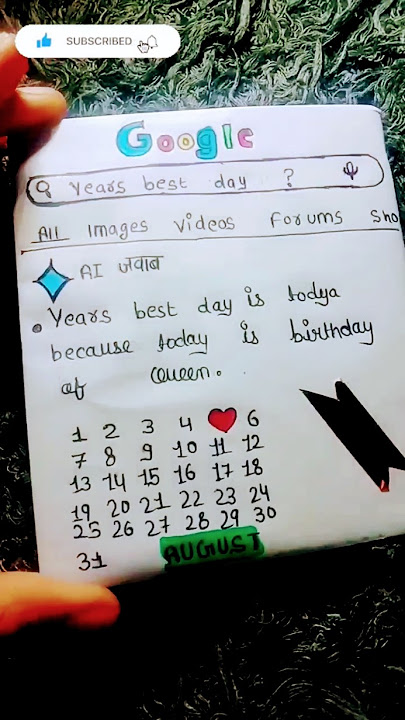 SUBSCRIBED
Google
Years best day ?
All Images Videos Forums Sho
AI जवाब
Years best day is todya
because today is birthday
of Queen.
1 2 3 4 6
7 8 9 10 11 12
13 14 15 16 17 18
19 20 21 22 23 24
25 26 27 28 29 30
31
AUGUST